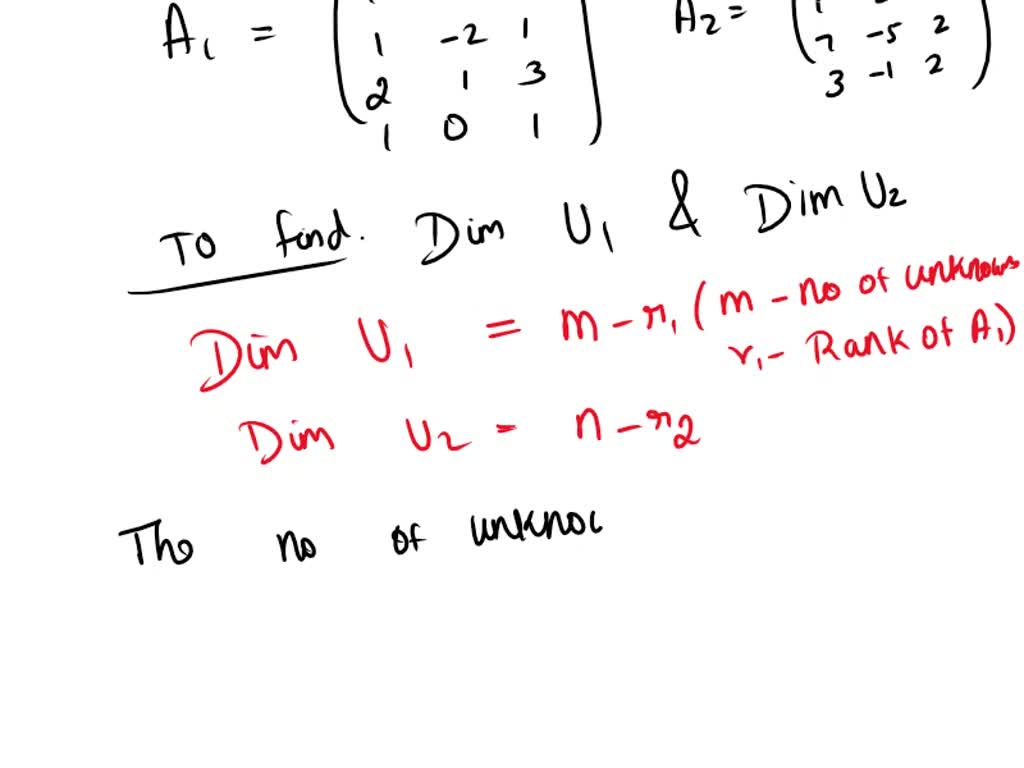 A1 = 1 -2 1 A2 =
2 1 3 7 -5 2
1 0 1 3 -1 2
To find. Dim U1 & Dim U2
Dim U1 = m - r1 (m - no of unknows
r1 - Rank of A1)
Dim U2 = n - r2
The no of unknoc